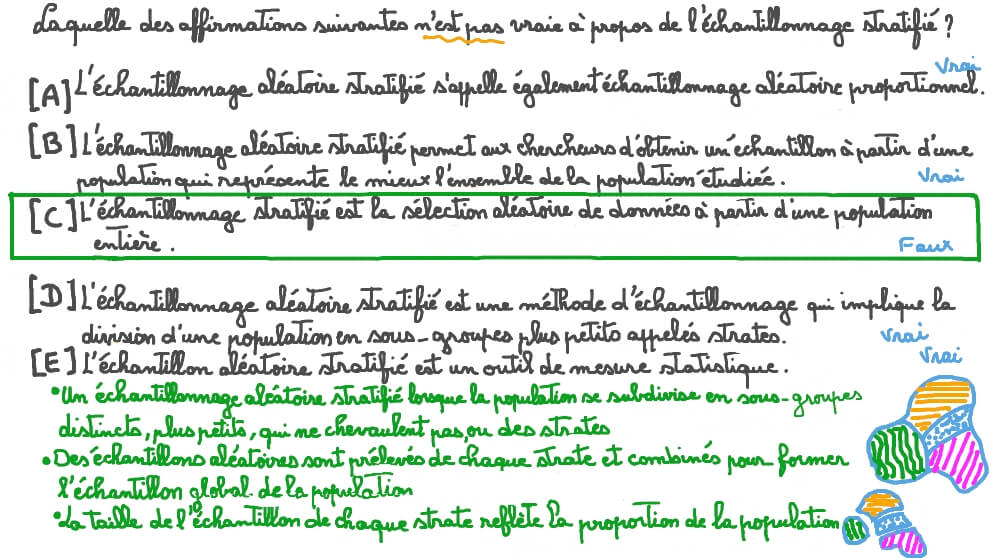 Laquelle des affirmations suivantes n'est pas vraie à propos de l'échantillonnage stratifié ?
Vrai
[A] L'échantillonnage aléatoire stratifié s'appelle également échantillonnage aléatoire proportionnel.
[B] L'échantillonnage aléatoire stratifié permet aux chercheurs d'obtenir un échantillon à partir d'une
population qui représente le mieux l'ensemble de la population étudiée. Vrai
[C] L'échantillonnage stratifié est la sélection aléatoire de données à partir d'une population
entière. Faux
[D] L'échantillonnage aléatoire stratifié est une méthode d'échantillonnage qui implique la
division d'une population en sous-groupes plus petits appelés strates. Vrai
[E] L'échantillon aléatoire stratifié est un outil de mesure statistique. Vrai
• Un échantillonnage aléatoire stratifié lorsque la population se subdivise en sous-groupes
distincts, plus petits, qui ne chevaulent pas, ou des strates
• Des échantillons aléatoires sont prélevés de chaque strate et combinés pour former
l'échantillon global de la population
• La taille de l'échantillon de chaque strate reflète la proportion de la population